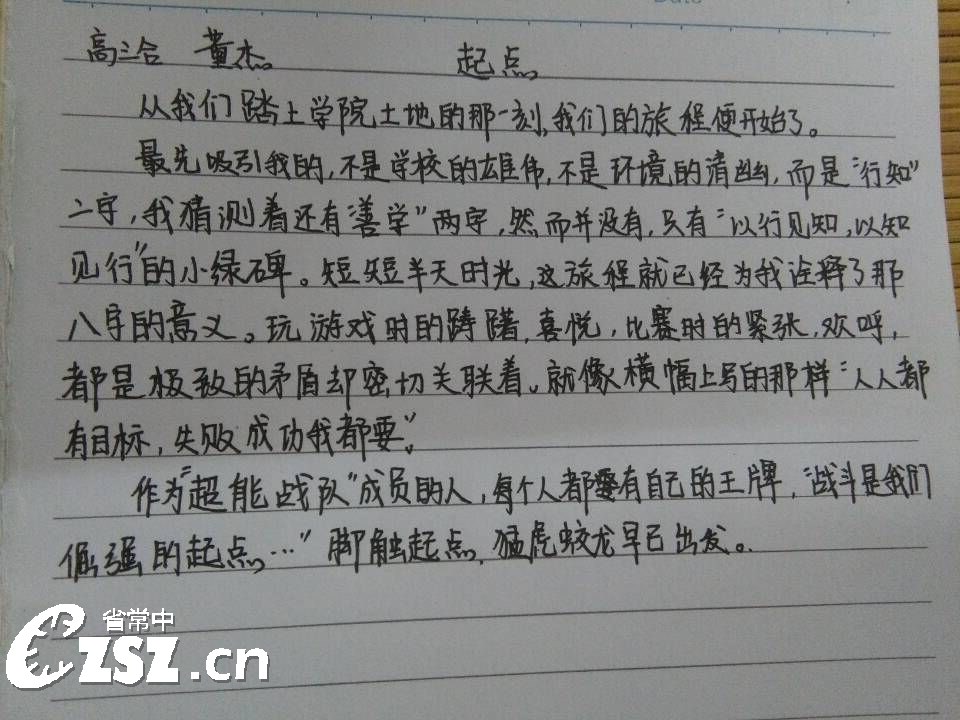 Date
高三合 董杰 起点
从我们踏上学院土地的那一刻,我们的旅程便开始了。
最先吸引我的,不是学校的雄伟,不是环境的清幽,而是“行知”
二字,我猜测着还有“善学”两字,然而并没有,只有“以行见知,以知
见行”的小绿碑。短短半天时光,这旅程就已经为我诠释了那
八字的意义。玩游戏时的踌躇,喜悦,比赛时的紧张,欢呼,
都是极致的矛盾却密切关联着。就像横幅上写的那样“人人都
有目标,失败成功我都要”。
作为“超能战队”成员的人,每个人都要有自己的王牌,“战斗是我们
倔强的起点…”脚触起点,猛虎蛟龙早已出发。
省常中
CZSZ.cn